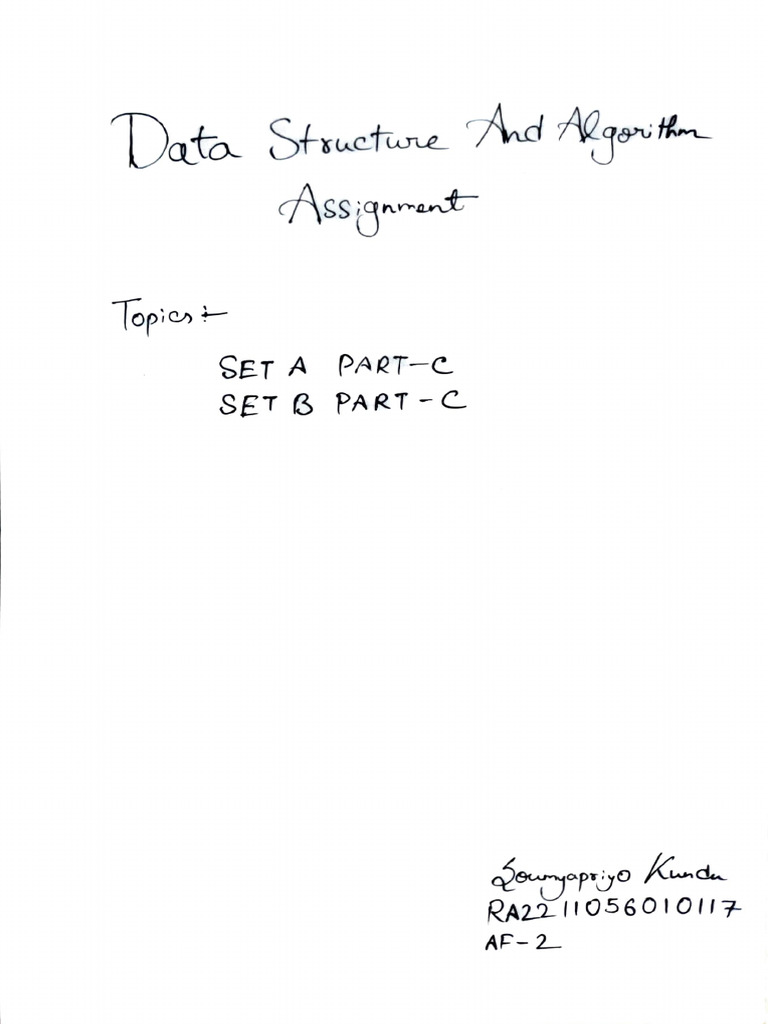 Data Structure And Algorithm
Assignment
Topics :-
SET A PART-C
SET B PART-C
Soumyapriyo Kundu
RA2211056010117
AF-2